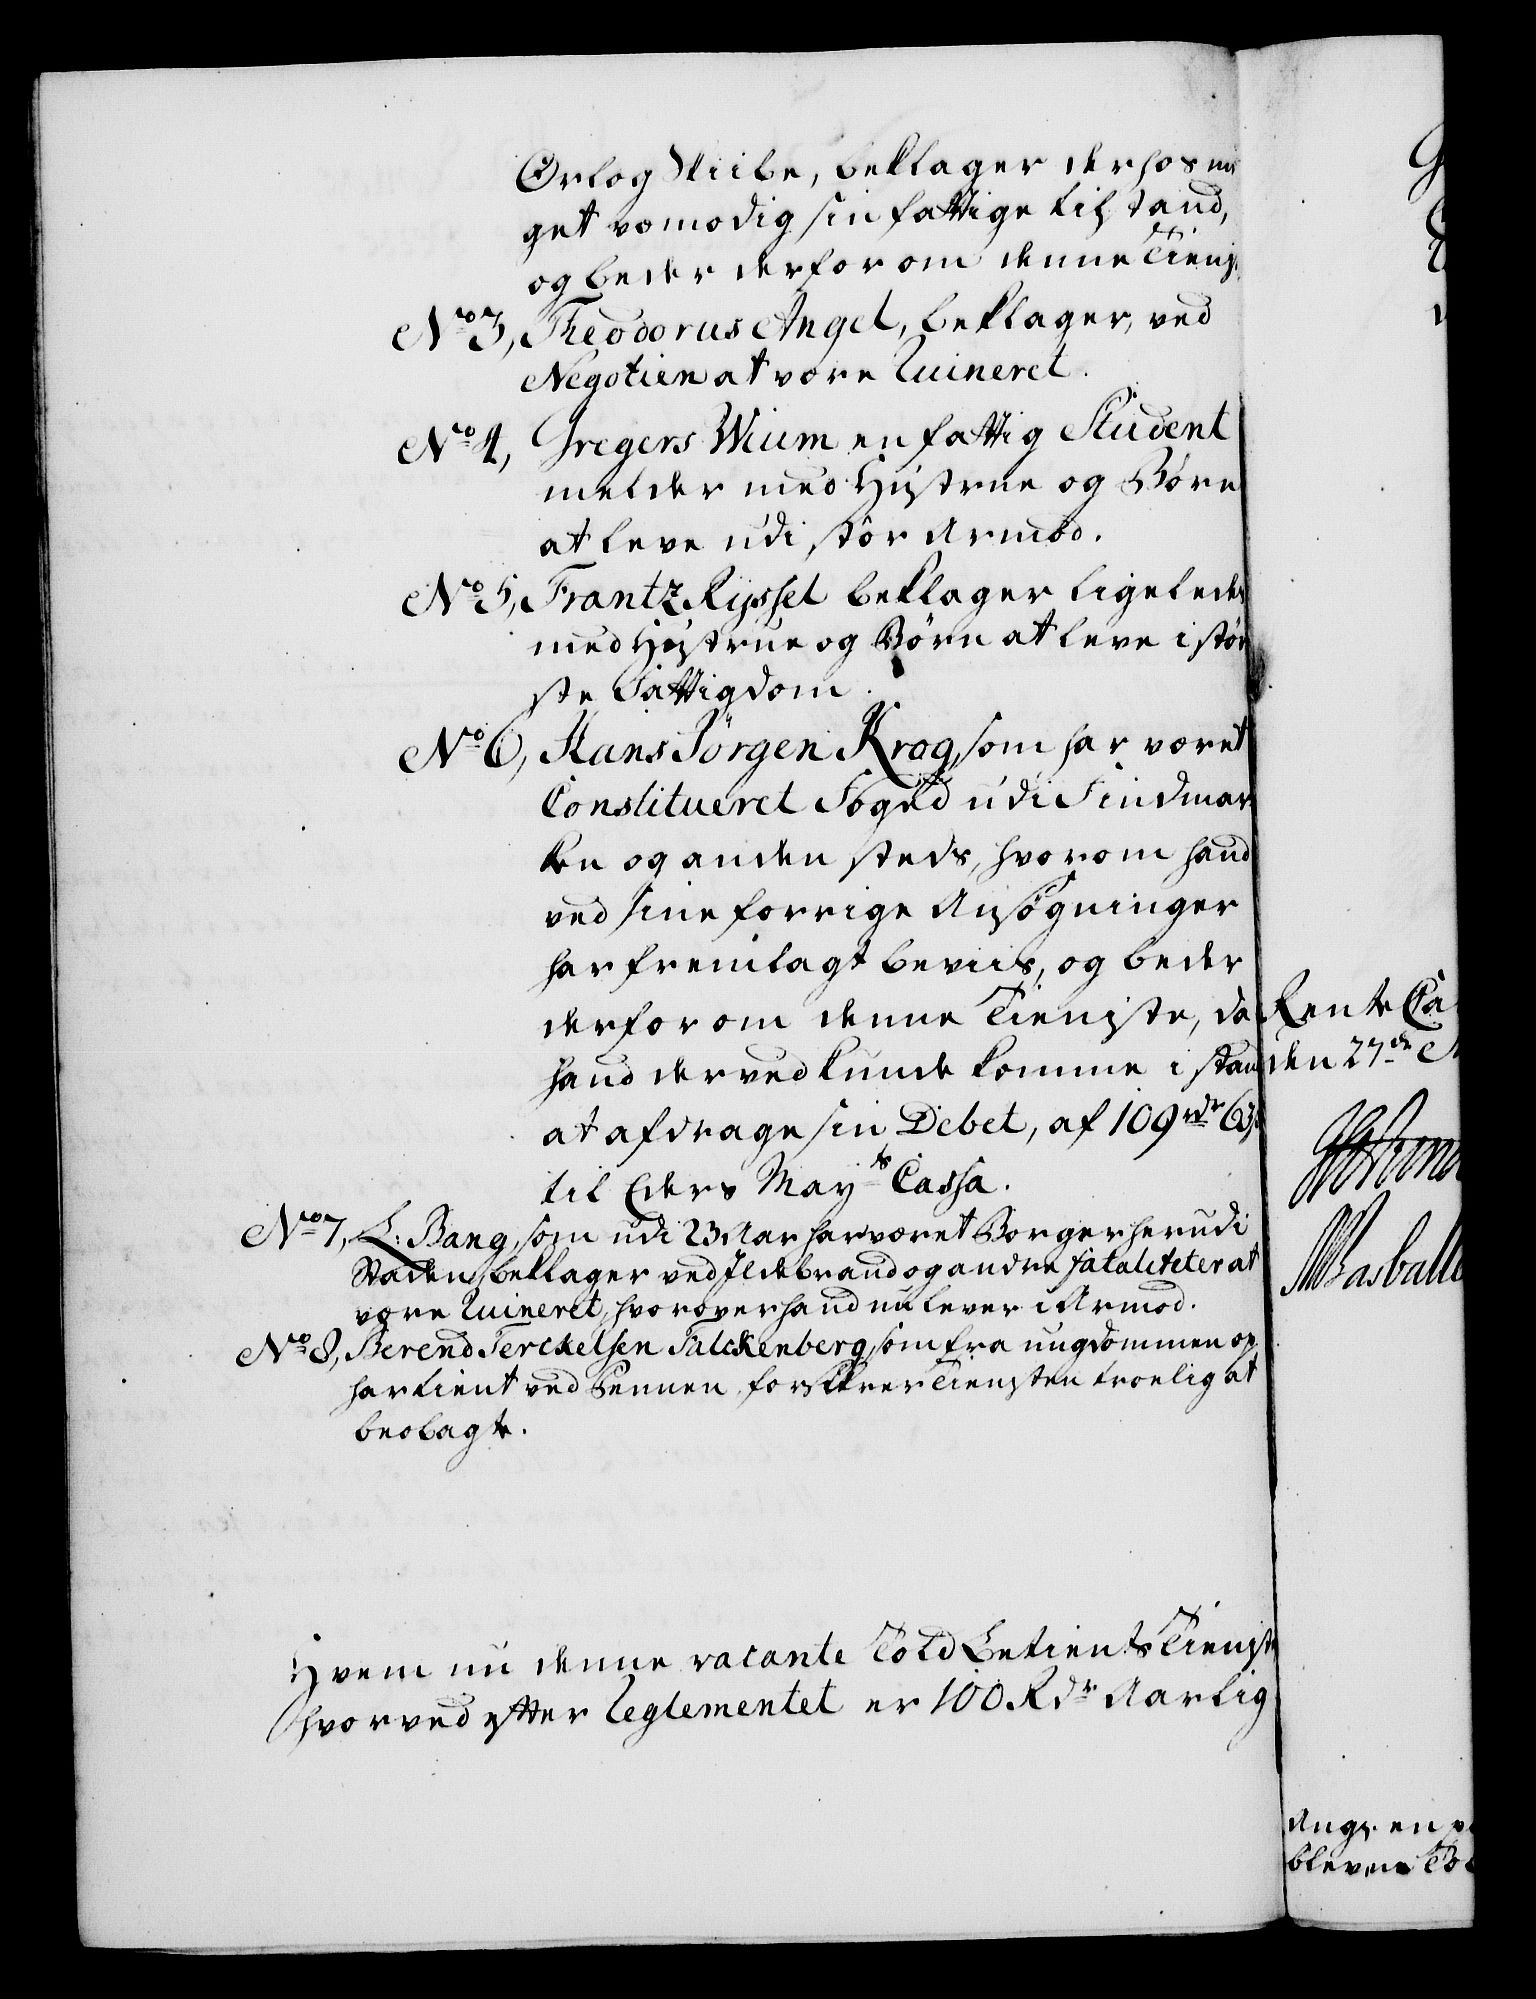 Orlog Skibe, beklager derhos me
get vemodig sin fattige tilstand,
og beder derfor om denne Tienst
No 3, Theodorus Angel, beklager, ved
Negotien at være Ruineret.
No 4, Gregers Wium en fattig Student
melder med Hustrue og Börn
at leve udi stor Armod.
No 5, Frantz Rÿssel beklager ligeledes
med Hustrue og Börn at leve i stör
ste Fattigdom.
No 6, Hans Jörgen Krog, som har været
Constitueret Foged udi Findmar
ken og anden steds, hvorom hand
ved sine forrige Ansögninger
har fremlagt beviis, og beder
derfor om denne Tieniste, da
hand derved kunde komme i stand
at afdrage sin Debet, af 109 rdr 63
til Eders Mayts Cassa.
No 7, L: Bang, som udi 23 Aar har været Borger her udi
Staden, beklager ved Ildebrand og andre fataliteter at
være Ruineret, hvorover hand nu lever i Armod.
No 8, Berend Terckelsen Falckenberg, som fra ungdommen op
har tient ved Pennen, forsikrer Tiensten troelig at
beobagte.
Hvem nu denne vacante Told Betients Tienste
hvorved efter Reglementet er 100 Rdr Aarlig
Rente Ca
den 27de
Rasballe
bleven Tol